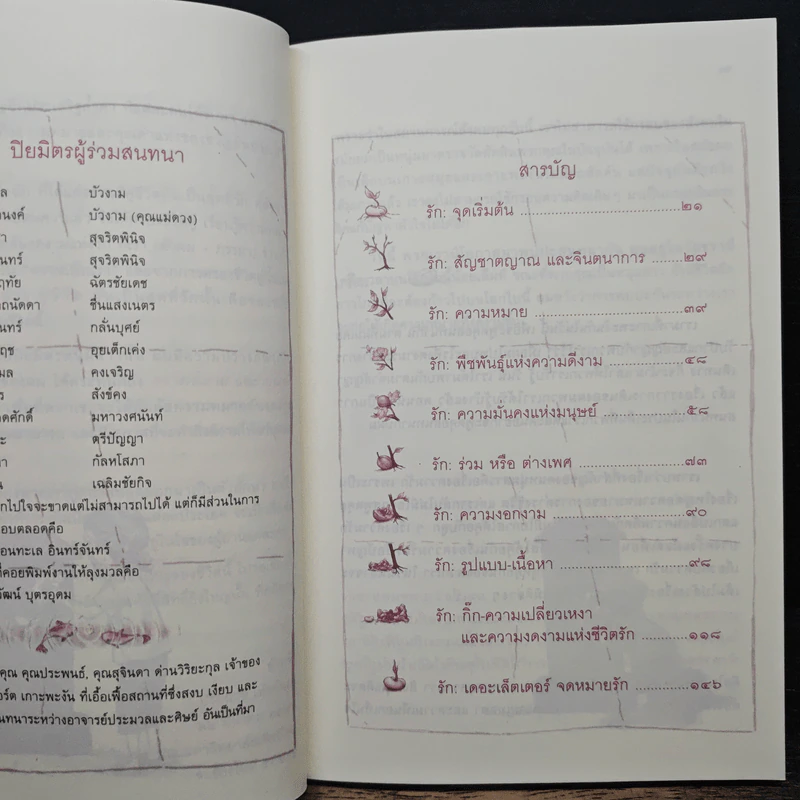 ปิยมิตรผู้ร่วมสนทนา
ล บัวงาม
นงค์ บัวงาม (คุณแม่ดวง)
า สุจริตพินิจ
นทร์ สุจริตพินิจ
ฤทัย ฉัตรชัยเดช
ถนัดดา ชื่นแสงเนตร
นทร์ กลั่นบุศย์
ฤช อุยเต็กเค่ง
มล คงเจริญ
ร สังข์คง
ดศักดิ์ มหาวงศนันท์
ะ ตรีปัญญา
า กัลหโสภา
น เฉลิมชัยกิจ
กไปใจจะขาดแต่ไม่สามารถไปได้ แต่ก็มีส่วนในการ
อบตลอดคือ
อนทะเล อินทร์จันทร์
ที่คอยพิมพ์งานให้ลุงมวลคือ
วัฒน์ บุตรอุดม
คุณ คุณประพนธ์, คุณสุจินดา ด่านวิริยะกุล เจ้าของ
อร์ต เกาะพะงัน ที่เอื้อเฟื้อสถานที่ซึ่งสงบ เงียบ และ
นทนาระหว่างอาจารย์ประมวลและศิษย์ อันเป็นที่มา
สารบัญ
รัก: จุดเริ่มต้น ........................................๒๑
รัก: สัญชาตญาณ และจินตนาการ ........๒๙
รัก: ความหมาย ......................................๓๙
รัก: พืชพันธุ์แห่งความดีงาม ....................๔๘
รัก: ความมั่นคงแห่งมนุษย์ ......................๕๘
รัก: ร่วม หรือ ต่างเพศ ............................๗๓
รัก: ความงอกงาม ..................................๙๐
รัก: รูปแบบ-เนื้อหา .................................๙๘
รัก: กิ๊ก-ความเปลี่ยวเหงา
และความงดงามแห่งชีวิตรัก ............๑๑๘
รัก: เดอะเล็ตเตอร์ จดหมายรัก .............๑๔๖